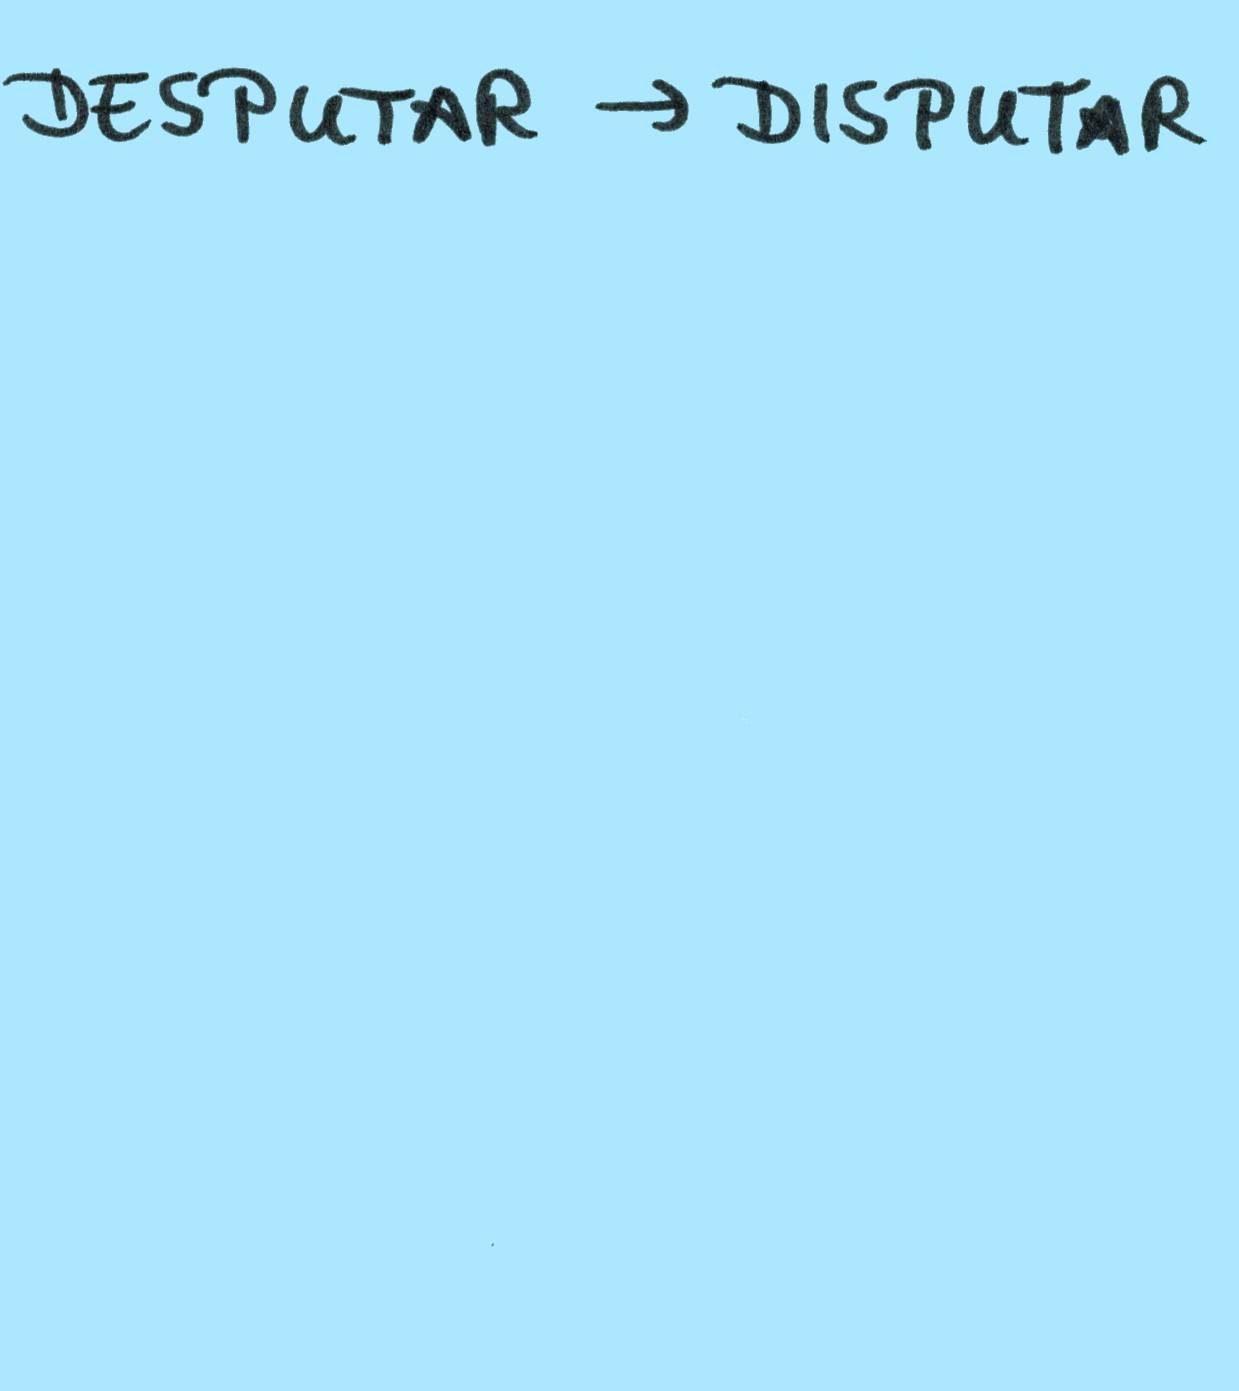 DESPUTAR → DISPUTAR